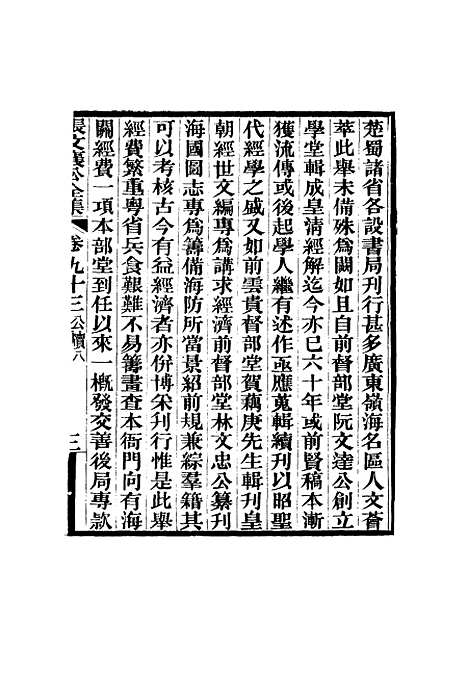 楚蜀諸省各設書局刊行甚多廣東嶺海名區人文薈
萃此舉未備殊為闕如且自前督部堂阮文達公創立
學堂輯成皇清經解迄今亦已六十年或前賢稿本漸
獲流傳或後起學人繼有述作亟應蒐輯續刊以昭聖
代經學之盛又如前雲貴督部堂賀藕庚先生輯刊皇
朝經世文編專為講求經濟前督部堂林文忠公纂刊
海國圖志專為籌備海防所當景紹前規兼綜羣籍其
可以考核古今有益經濟者亦併博采刊行惟是此舉
經費繁重粵省兵食艱難不易籌畫查本衙門向有海
關經費一項本部堂到任以來一槪發交善後局專款
張文襄公全集 卷九十三 公牘八 三